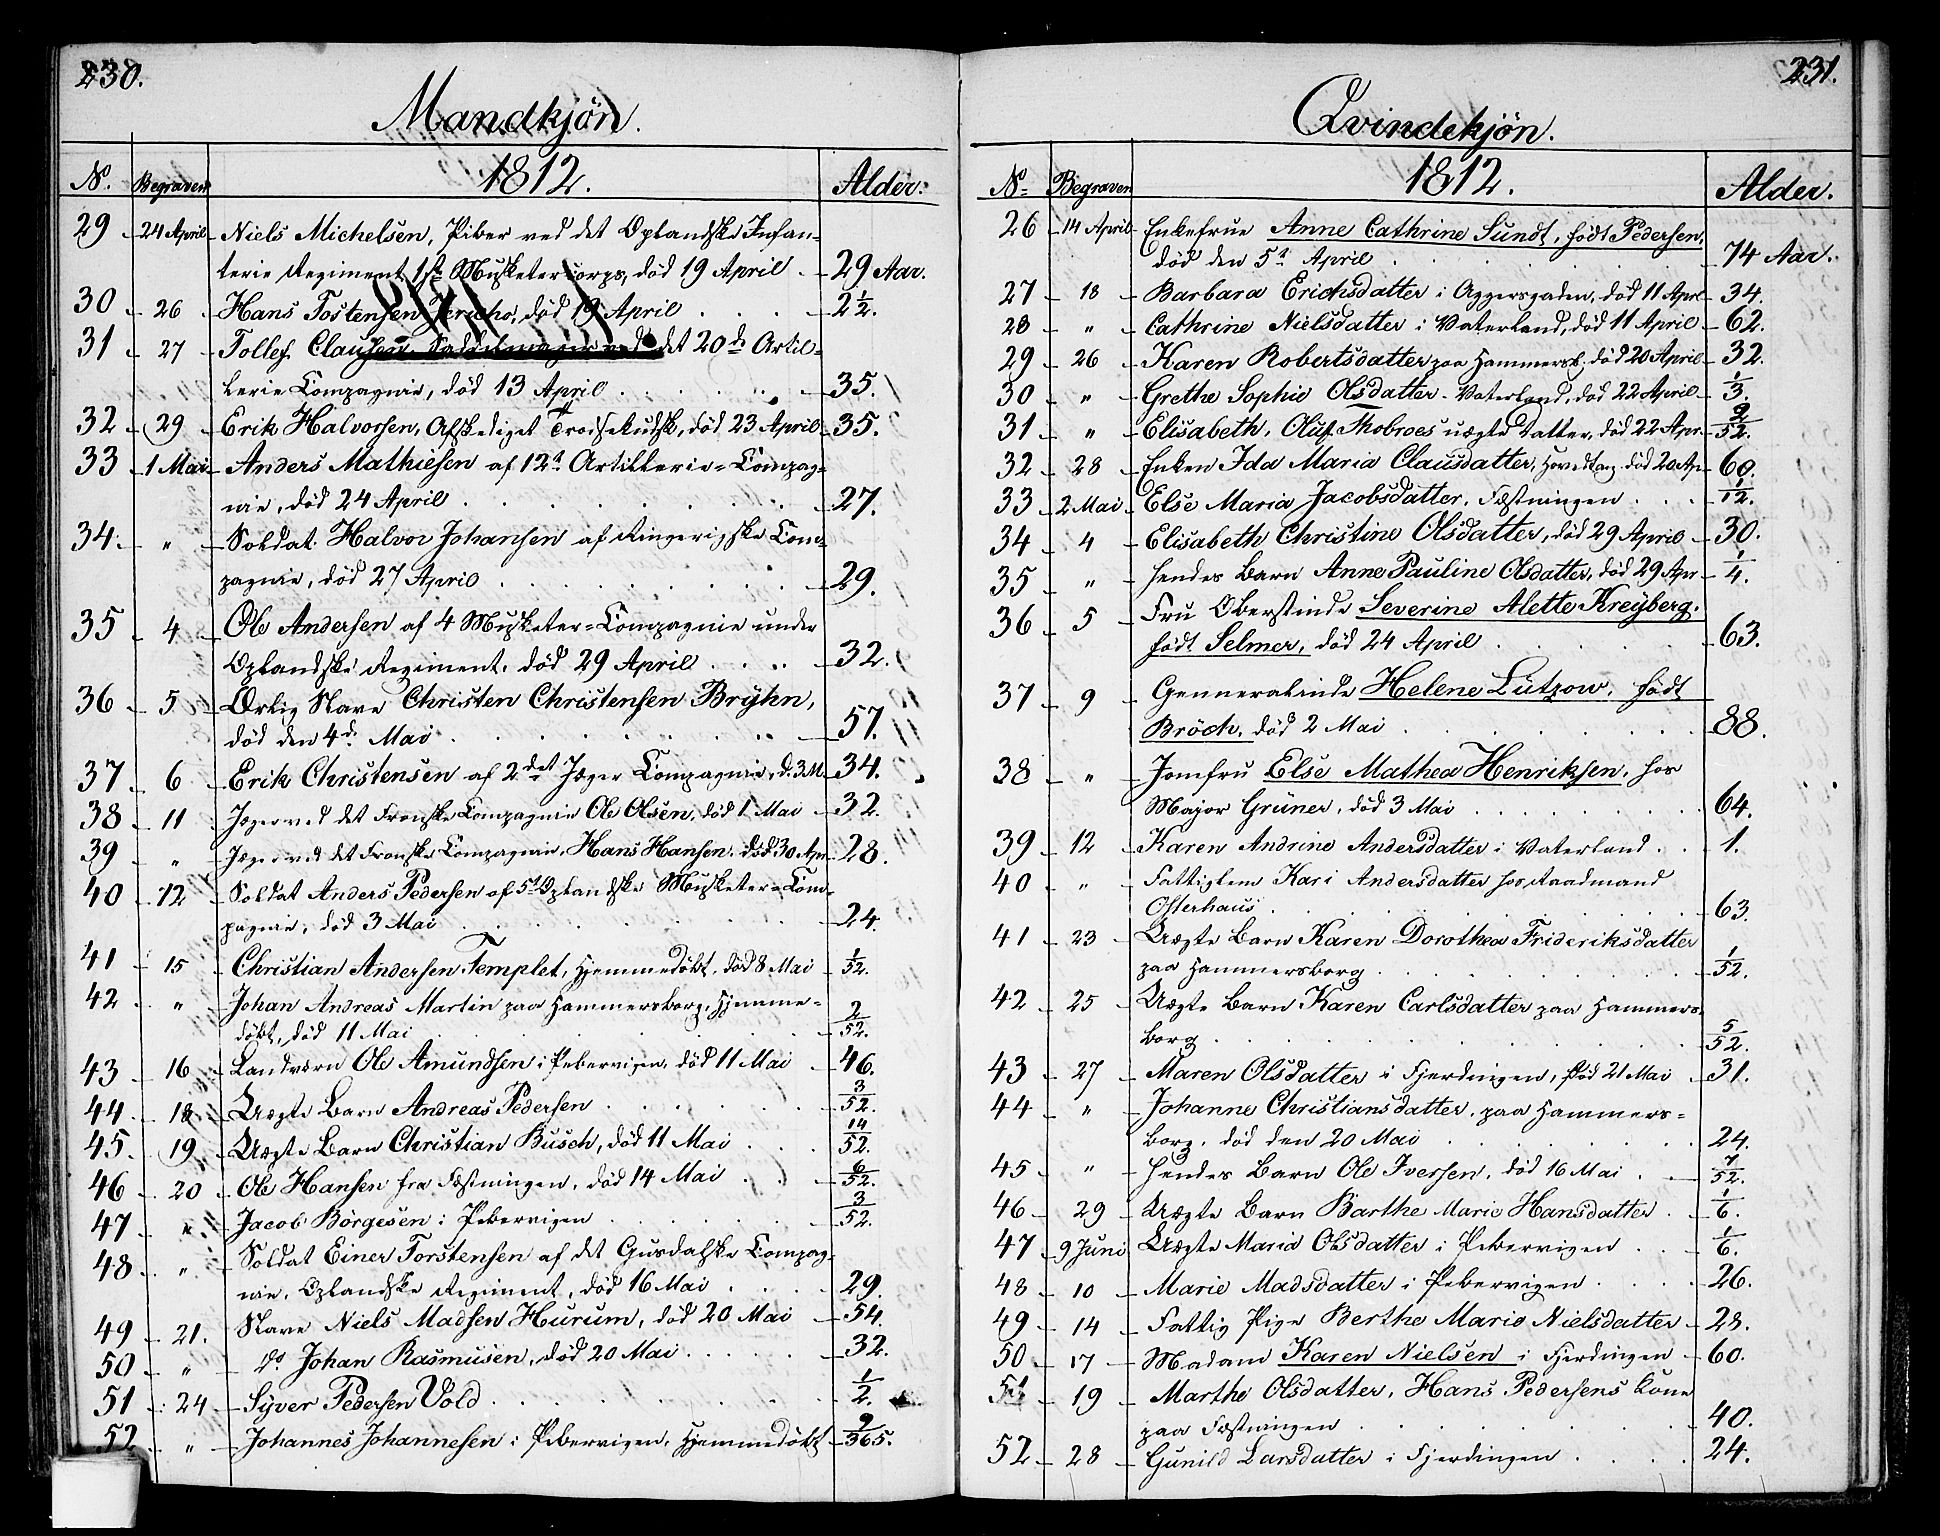 230.
Mandkjön.
No. Begraven 1812. Alder.
29 24 April Niels Michelsen, Piber ved det Oplandske Infan-
terie Regiment 1ste Musketercorps, död 19 April . 29 Aar.
30 26 Hans Tostensen Jericho, död 19 April . . . 2 1/2.
31 27 Tollef Clausen, Saddelmager ved det 20de Artil-
lerie Compagnie, död 13 April . . . 35.
32 29 Erik Halvorsen, Afskediget Trodsekudsk, död 23 April 35.
33 1 Mai Anders Mathiesen af 12te Artillerie-Compag-
nie, död 24 April . . . 27.
34. " Soldat Halvor Johansen af Ringerigske Com-
pagnie, död 27 April . . . 29.
35 4 Ole Andersen af 4 Musketer-Compagnie under
Oplandske Regiment, död 29 April . . . 32.
36 5 Ærlig Slave Christen Christensen Bryhn,
död den 4de Mai . . . 57.
37 6 Erik Christensen af 2det Jæger Compagnie, d. 3 M. 34.
38 11 Jæger ved det Fronske Compagnie Ole Olsen, död 1 Mai 32.
39 " Jæger ved det Fronske Compagnie, Hans Hansen, död 30 Apr. 28.
40 12 Soldat Anders Pedersen af 5te Oplandske Musketer-Com-
pagnie, död 3 Mai . . . 24.
41 15 Christian Andersen Templet, Hjemmedöbt, död 8 Mai 1/52.
42 " Johan Andreas Martin paa Hammersborg, Hjemme-
döbt, död 11 Mai . . . 2/52.
43 16 Landværn Ole Amundsen i Pebervigen, död 11 Mai 46.
44 18 Uægte Barn Andreas Pedersen . . . 3/52.
45. 19 Uægte Barn Christian Busch, död 11 Mai . . . 14/52.
46 20 Ole Hansen fra Fæstningen, död 14 Mai . . . 6/52.
47 " Jacob Börgesen i Pebervigen . . . 3/52.
48 " Soldat Einer Torstensen af det Gusdalske Compag-
nie, Oplandske Regiment, död 16 Mai . . . 29.
49 21. Slave Niels Madsen Hurum, död 20 Mai 54.
50 " do Johan Rasmusen, död 20 Mai . . . 32.
51 24 Syver Pedersen Vold . . . 1/2.
52 " Johannes Johannesen i Pebervigen, Hjemmedöbt 9/365.
231.
Qvindekjön.
No Begraven 1812. Alder.
26 14 April Enkefrue Anne Cathrine Sundt, født Pedersen,
död den 5te April . . . 74 Aar.
27 18 Barbara Erichsdatter i Aggersgaden, död 11 Apr. 34.
28 " Cathrine Nielsdatter i Vaterland, död 11 April 62.
29 26 Karen Robertsdatter paa Hammersb. död 20 April 32.
30 " Grethe Sophie Olsdatter, Vaterland, död 22 April 1/3.
31 " Elisabeth, Oluf Thobroes uægte Datter, död 22 Apr. 9/52.
32 28 Enken Ida Maria Clausdatter, Hovedtang. död 20 Ap. 60.
33 2 Mai Else Maria Jacobsdatter, Fæstningen . . . 1/12.
34 4 Elisabeth Christine Olsdatter, död 29 April 30.
35 " hendes Barn Anne Pauline Olsdatter, död 29 Apr 1/4.
36 5 Fru Oberstinde Severine Alette Kreyberg,
født Selmer, död 24 April . . . 63.
37 9 Genneralinde Helene Lützow, født
Bröch, död 2 Mai . . . 88.
38 " Jomfru Else Mathea Henriksen, hos
Major Grüner, död 3 Mai . . . 64.
39 12 Karen Andrine Andersdatter i Vaterland . . 1.
40 " Fattiglem Kari Andersdatter hos Raadmand
Osterhaus . . . 63.
41 23 Uægte Barn Karen Dorothea Frideriksdatter
paa Hammersborg . . . 1/52.
42 25 Uægte Barn Karen Carlsdatter paa Hammers-
borg . . . 5/52.
43 27 Maren Olsdatter i Fjerdingen, död 21 Mai 31.
44 " Johanne Christiansdatter, paa Hammers-
borg, död den 20 Mai . . . 24.
45 " hendes Barn Ole Iversen, död 16 Mai . 7/52.
46 29 Uægte Barn Barthe Marie Hansdatter . 1/6.
47 9 Juni Uægte Maria Olsdatter i Pebervigen . . 1/6.
48 10 Marie Madsdatter i Pebervigen . . . 26.
49 14 Fattig Pige Berthe Marie Nielsdatter 28.
50 17 Madam Karen Nielsen i Fjerdingen 60.
51 19 Marthe Olsdatter, Hans Pedersens Kone
paa Fæstningen . . . 40.
52 28 Gunild Larsdatter i Fjerdingen . . . 24.